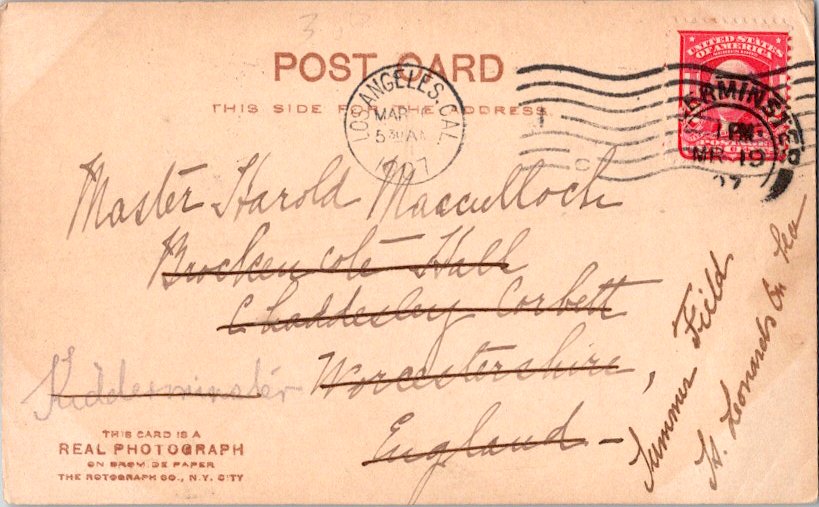 POST CARD
THIS SIDE FOR THE ADDRESS.
LOS ANGELES, CAL.
MAR
5 30 AM
1907
UNITED STATES
OF AMERICA
KIDDERMINSTER
1 PM
MR 19
07
Master Harold Macculloch
Brockencote Hall
Chaddesley Corbett
Worcestershire,
England -
Kidderminster
Summer Field
St. Leonards On Sea
THIS CARD IS A
REAL PHOTOGRAPH
ON BROMIDE PAPER
THE ROTOGRAPH CO., N.Y. CITY